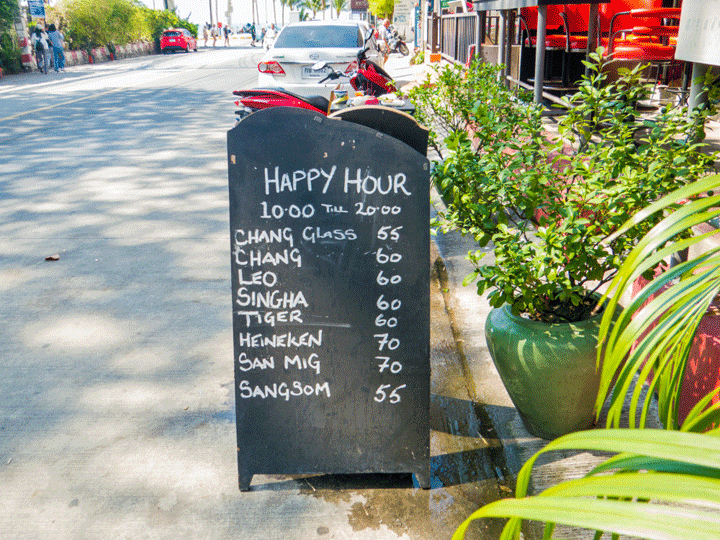 HAPPY HOUR
10.00 TILL 20.00
CHANG GLASS 55
CHANG 60
LEO 60
SINGHA 60
TIGER 60
HEINEKEN 70
SAN MIG 70
SANGSOM 55